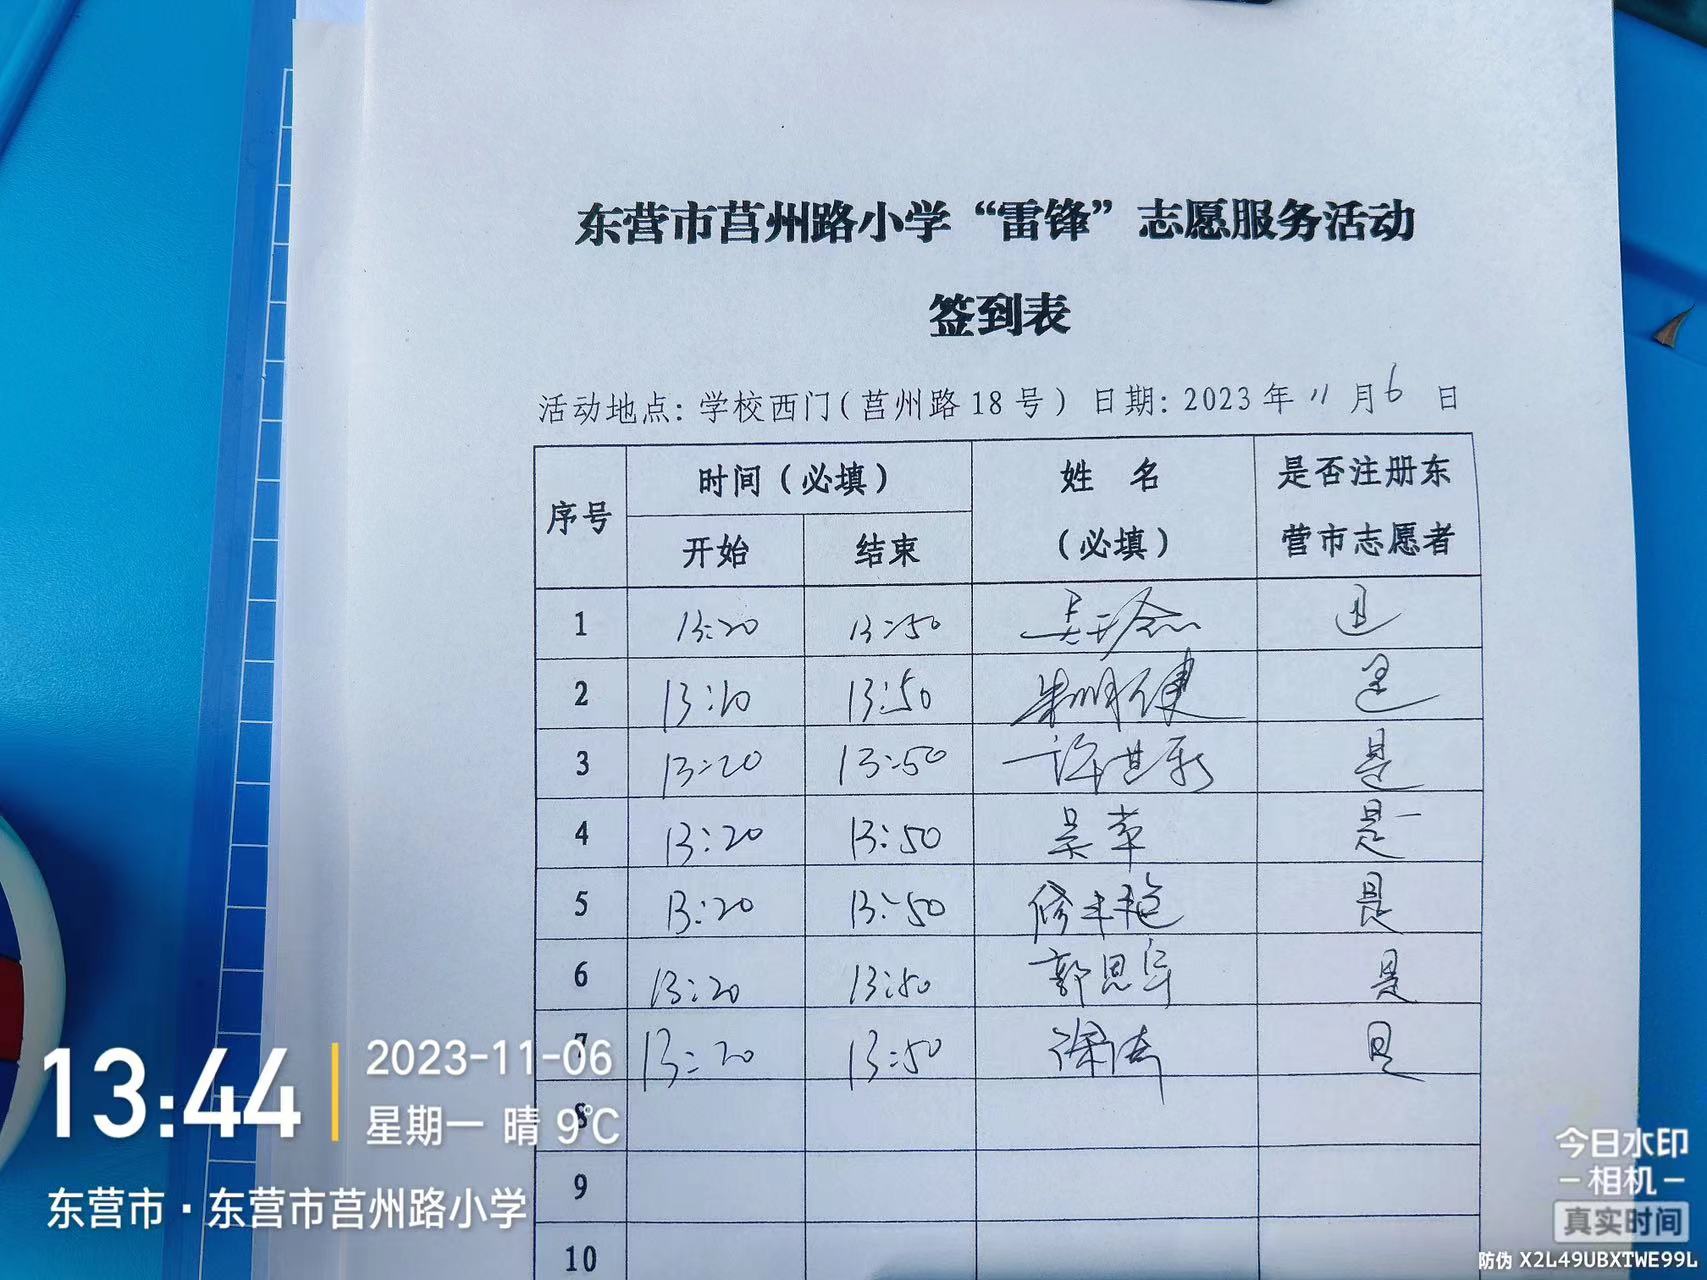 东营市莒州路小学“雷锋”志愿服务活动
签到表
活动地点:学校西门(莒州路18号) 日期:2023年11月6日
序号 时间(必填) 姓 名 (必填) 是否注册东营市志愿者
开始 结束
1 13:20 13:50 是
2 13:20 13:50 朱明健 是
3 13:20 13:50 许世新 是
4 13:20 13:50 吴苹 是
5 13:20 13:50 修丰艳 是
6 13:20 13:50 郭思军 是
7 13:20 13:50 徐倩 是
8
9
10
13:44
2023-11-06
星期一 晴 9℃
东营市·东营市莒州路小学
今日水印
相机
真实时间
防伪 X2L49UBXTWE99L